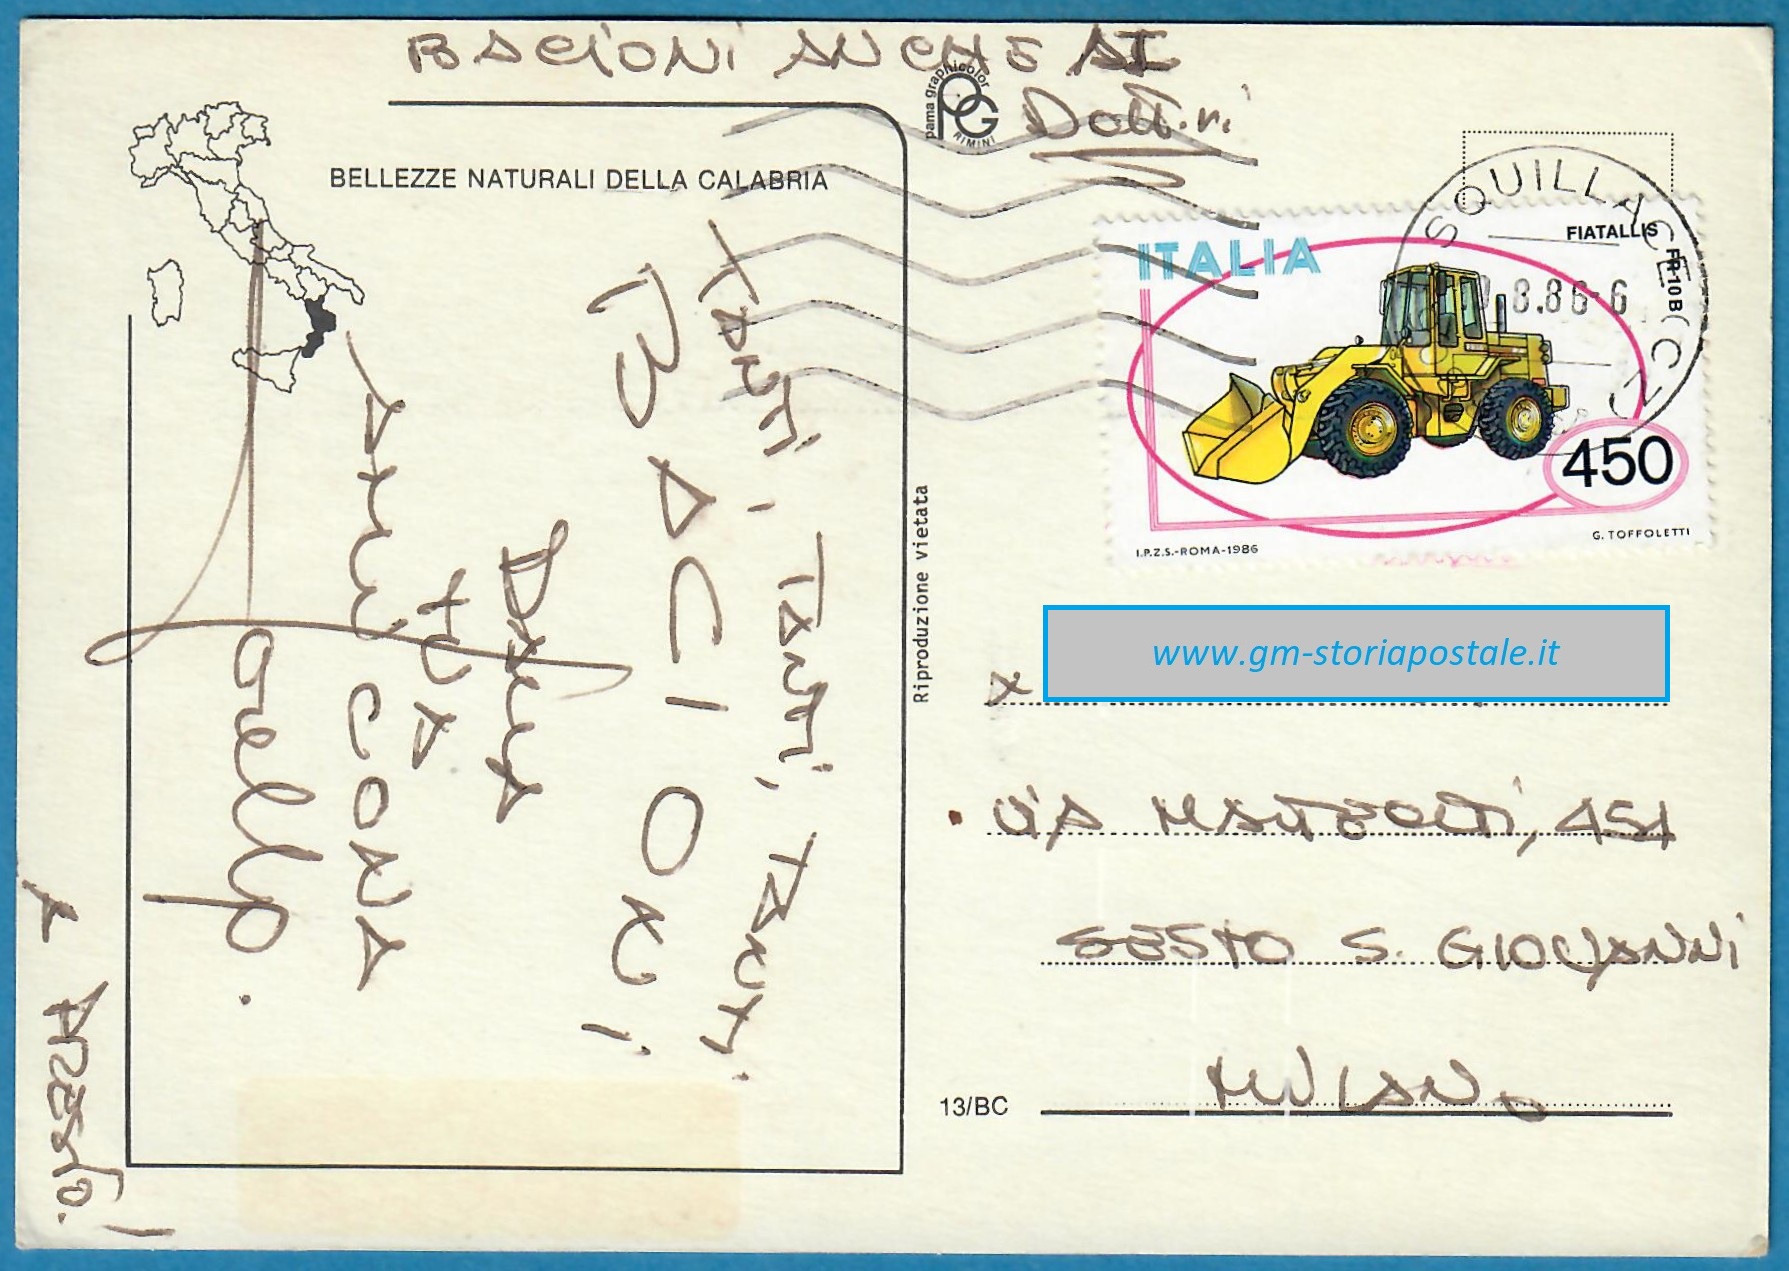 BACIONI ANCHE AI
Dott.ri
pama graphicolor
PG
RIMINI
BELLEZZE NATURALI DELLA CALABRIA
TANTI, TANTI, TANTI
BACIONI!
DALLA
TUA
AMICONA
Ornella.
A PRESTO!
Riproduzione vietata
SQUILLACE (CZ)
8.86-6
ITALIA
FIATALLIS
FR 10 B
450
I.P.Z.S.-ROMA-1986
G. TOFFOLETTI
www.gm-storiapostale.it
x
VIA
SESTO S. GIOVANNI
MILANO
13/BC